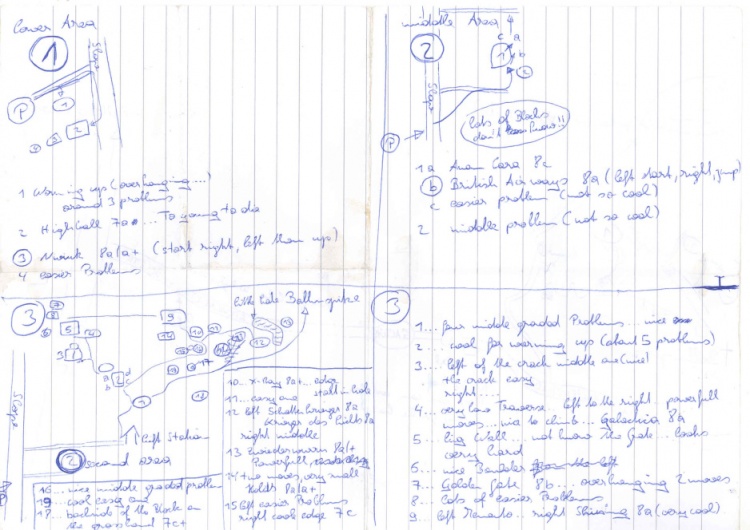 lower Area
1
Slope
P
1
2
1 Warming ups (overhanging...)
around 3 problems
2 Highball 7a... To going to do
3 Nunuk 8a/a+ (start right, left then up)
4 easier Problems
middle Area
2
c a
1 b
2
Slope
P
Lots of Blocks
don't know!!
1 a Anam Cara 8c
b British Airways 8a (left start, right, jump)
c easier problem (not so cool)
2 middle problem (not so cool)
3
little lake Ballunspitze
Slope
Lift Station
2 second area
P
10 ... X-Ray 8a+ ... edge
11 ... easy one
12 left 8a
8a
right middle
13 8a/+
Powerfull,
14 two moves, very small
Holds 8a/a+
15 left easier Problems
right cool edge 7c
16 ... nice middle graded problem
19 cool easy one
18. backside of the Block on
the 7c+
3
1 ... four middle graded Problems ... nice
2 .. cool for warming up (about 5 problems)
3 ... left of the crack middle one (nice)
the crack easy
right ....
4 ... very long Traverse .. left to the right powerfull
moves .. nice to climb .. Galachica 8a
5 .. big Wall .. not know the Gate .. looks
very hard
6 ... nice Boulder
7 ... Golden Gate 8b ... overhanging 2 moves
8 ... Lots of easier Problems
9 .. left Tomato .. right Shining 8a (very cool)